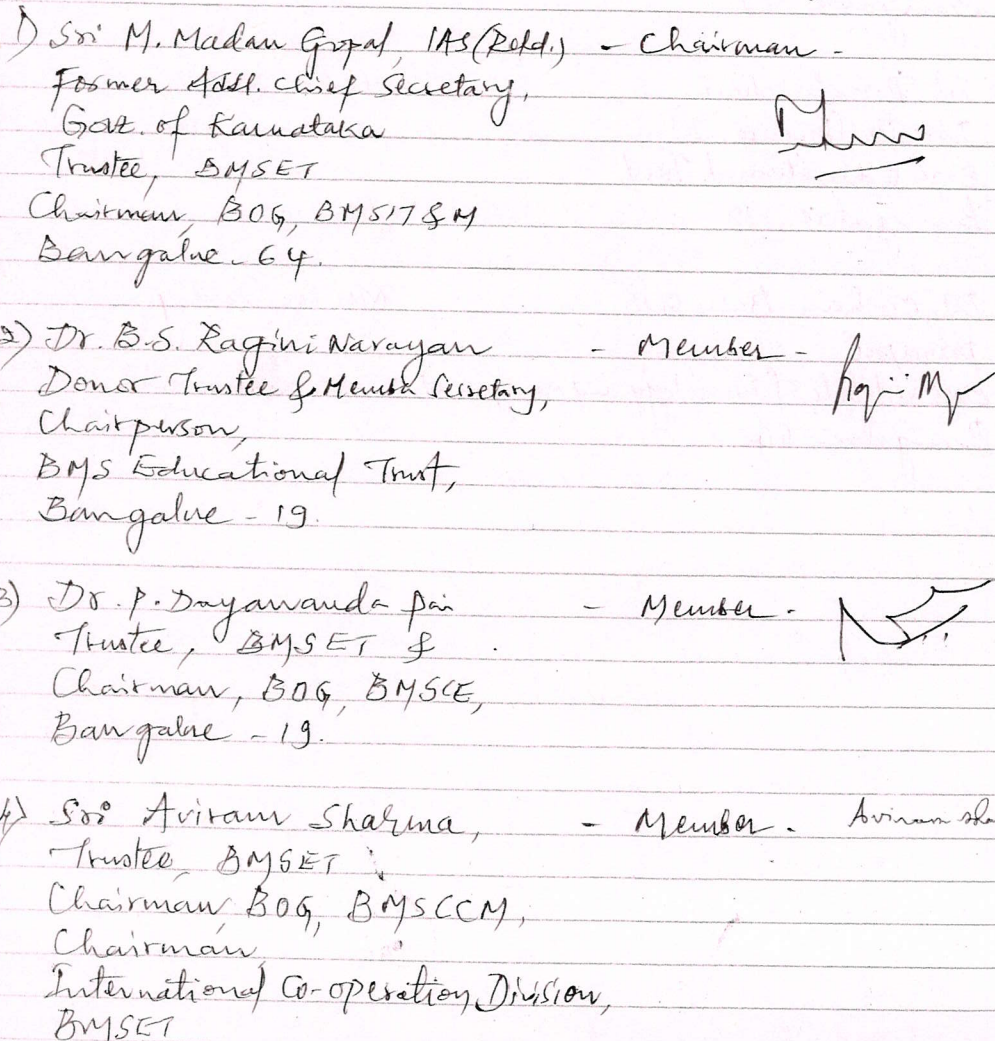 1) Sri M. Madan Gopal, IAS (Retd.) - Chairman -
Former Addl. Chief Secretary,
Govt. of Karnataka
Trustee, BMSET
Chairman, BOG, BMSIT&M
Bangalore - 64.
2) Dr. B.S. Ragini Narayan - Member -
Donor Trustee & Member Secretary,
Chairperson,
BMS Educational Trust,
Bangalore - 19.
3) Dr. P. Dayananda Pai - Member -
Trustee, BMSET &
Chairman, BOG, BMSCE,
Bangalore - 19.
4) Sri Aviram Sharma, - Member - Aviram Sha
Trustee, BMSET
Chairman BOG, BMSCCM,
Chairman,
International Co-operation, Division,
BMSET